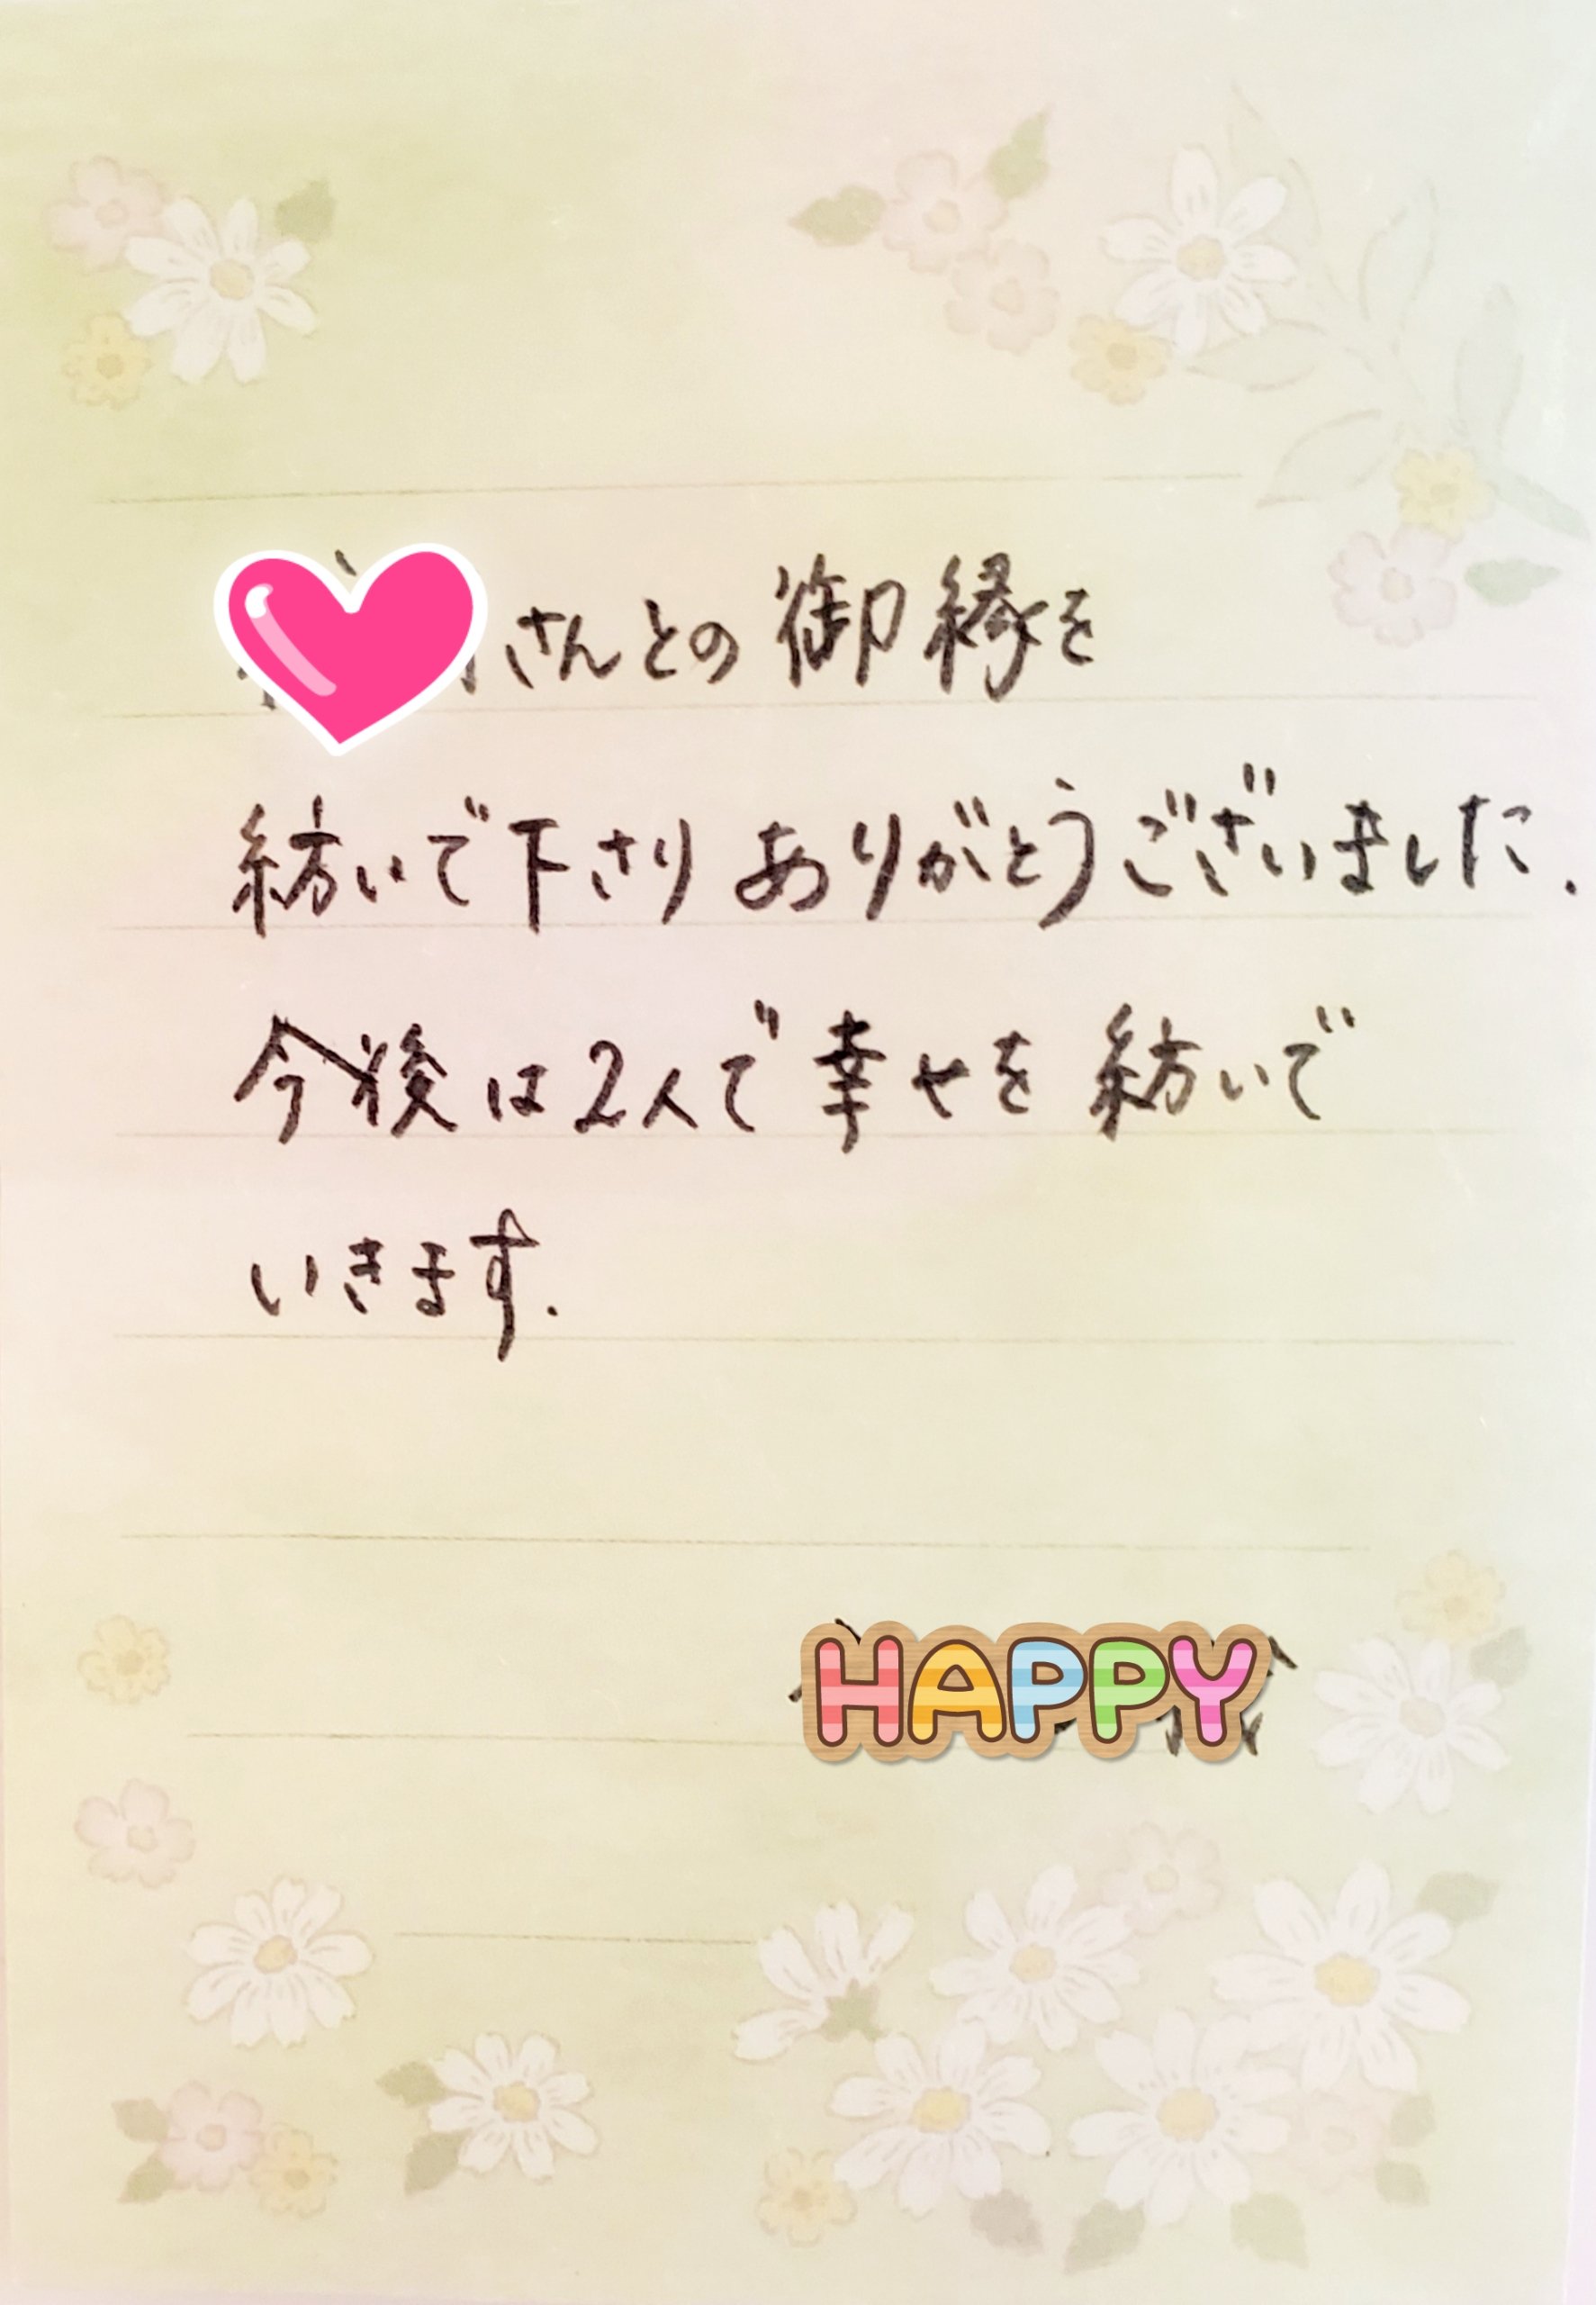 さんとの御縁を
紡いで下さりありがとうございました.
今後は2人で幸せを紡いで
いきます.
HAPPY